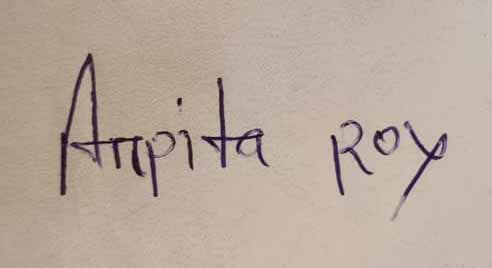 Arpita Roy